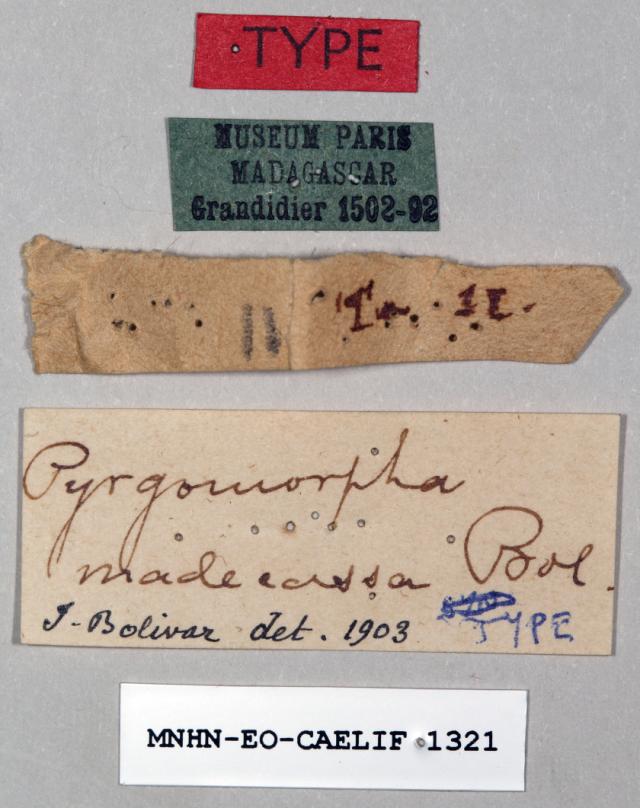 TYPE
MUSEUM PARIS
MADAGASCAR
Grandidier 1502-92
Pyrgomorpha
madecassa Bol.
I. Bolivar det. 1903 TYPE
MNHN-EO-CAELIF 1321